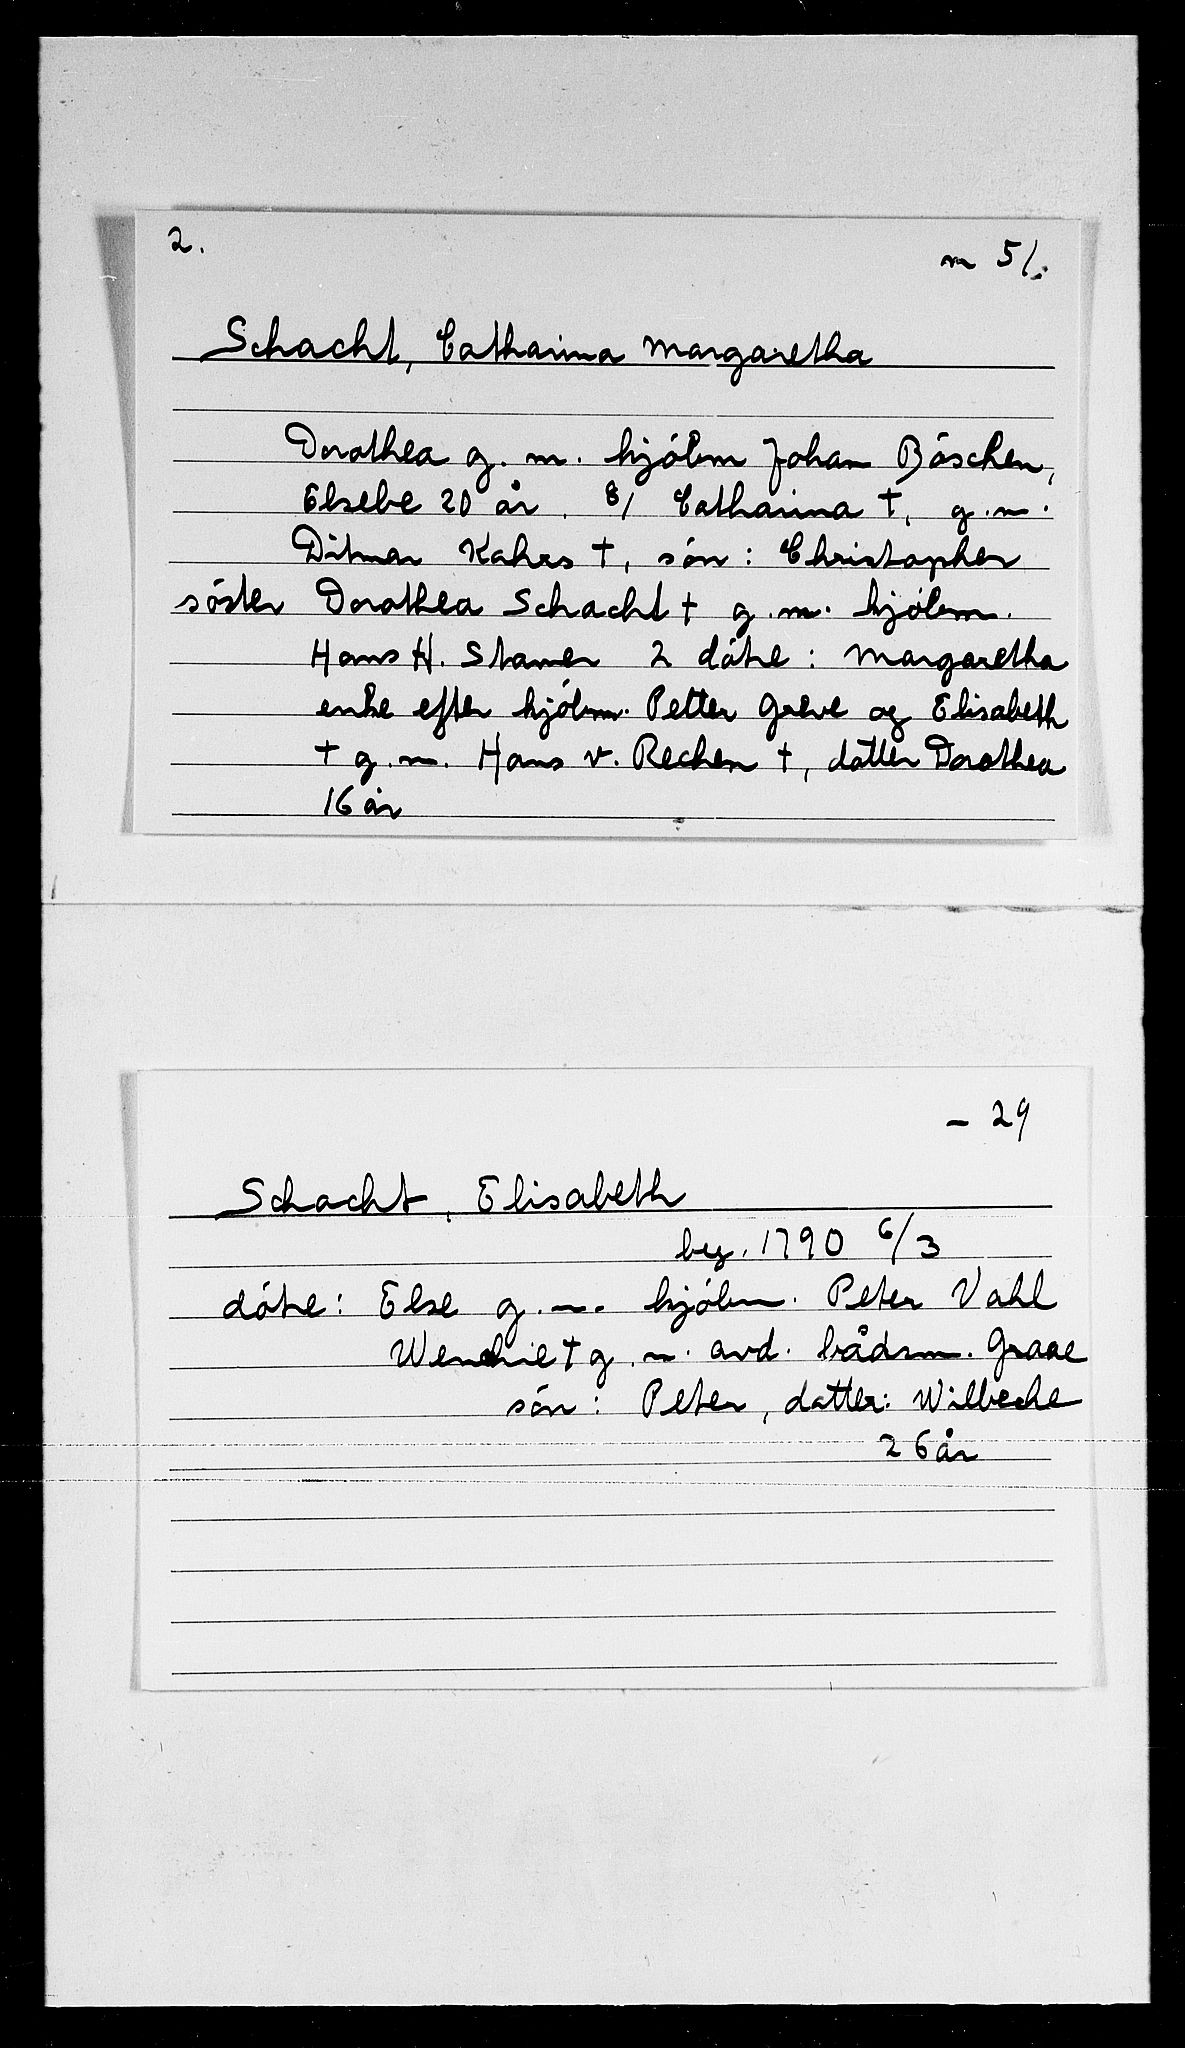 2.
m 51.
Schacht, Catharina Margaretha
Dorothea g. m. kjöbm Johan Böschen,
Elsebe 20 år. 8/ Catharina †, g. m.
Ditmar Kahrs †, sön: Christopher
söster Dorothea Schacht † g. m. kjöbm.
Hans H. Stamer 2 dötre: Margaretha
enke efter kjöbm. Petter Greve og Elisabeth
† g. m. Hans v. Rechen †, datter Dorothea
16 år
- 29
Schacht, Elisabeth
beg. 1790 6/3
dötre: Else g. m. kjöbm. Peter Vahl
Wenchie † g. m. avd. bådsm. Graae
sön: Peter, datter: Wilbeche
26 år